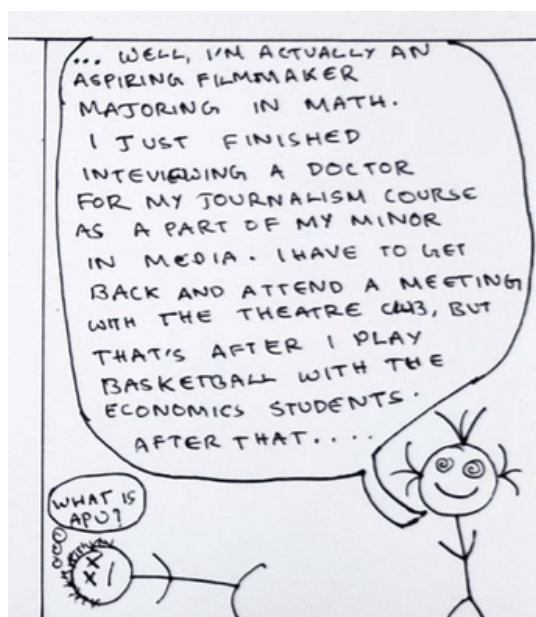 ... WELL, I'M ACTUALLY AN
ASPIRING FILMMAKER
MAJORING IN MATH.
I JUST FINISHED
INTEVIEWING A DOCTOR
FOR MY JOURNALISM COURSE
AS A PART OF MY MINOR
IN MEDIA. I HAVE TO GET
BACK AND ATTEND A MEETING
WITH THE THEATRE CLUB, BUT
THAT'S AFTER I PLAY
BASKETBALL WITH THE
ECONOMICS STUDENTS.
AFTER THAT....
WHAT IS
APU?